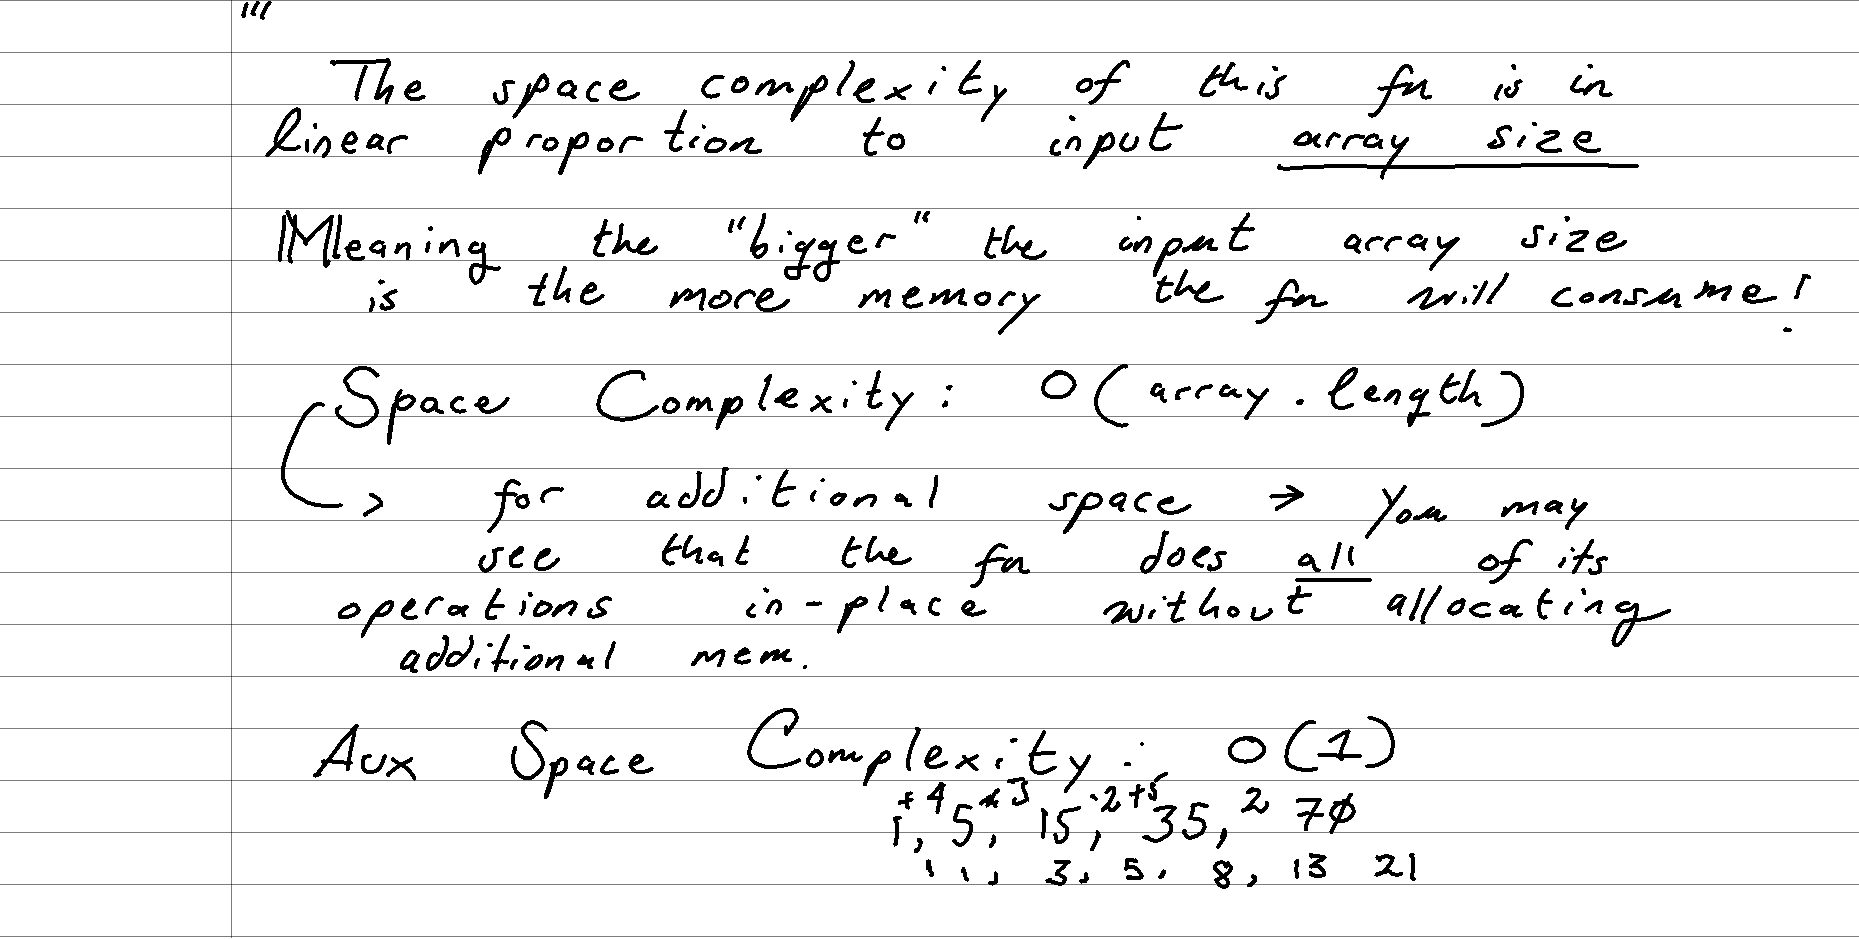 "'
The space complexity of this fn is in
linear proportion to input array size
Meaning the "bigger" the input array size
is the more memory the fn will consume!
Space Complexity: O(array.length)
for additional space → You may
see that the fn does all of its
operations in-place without allocating
additional mem.
Aux Space Complexity: O(1)
+4 ×3 ·2+5 2
1, 5, 15, 35, 70
1 1, 3, 5, 8, 13 21